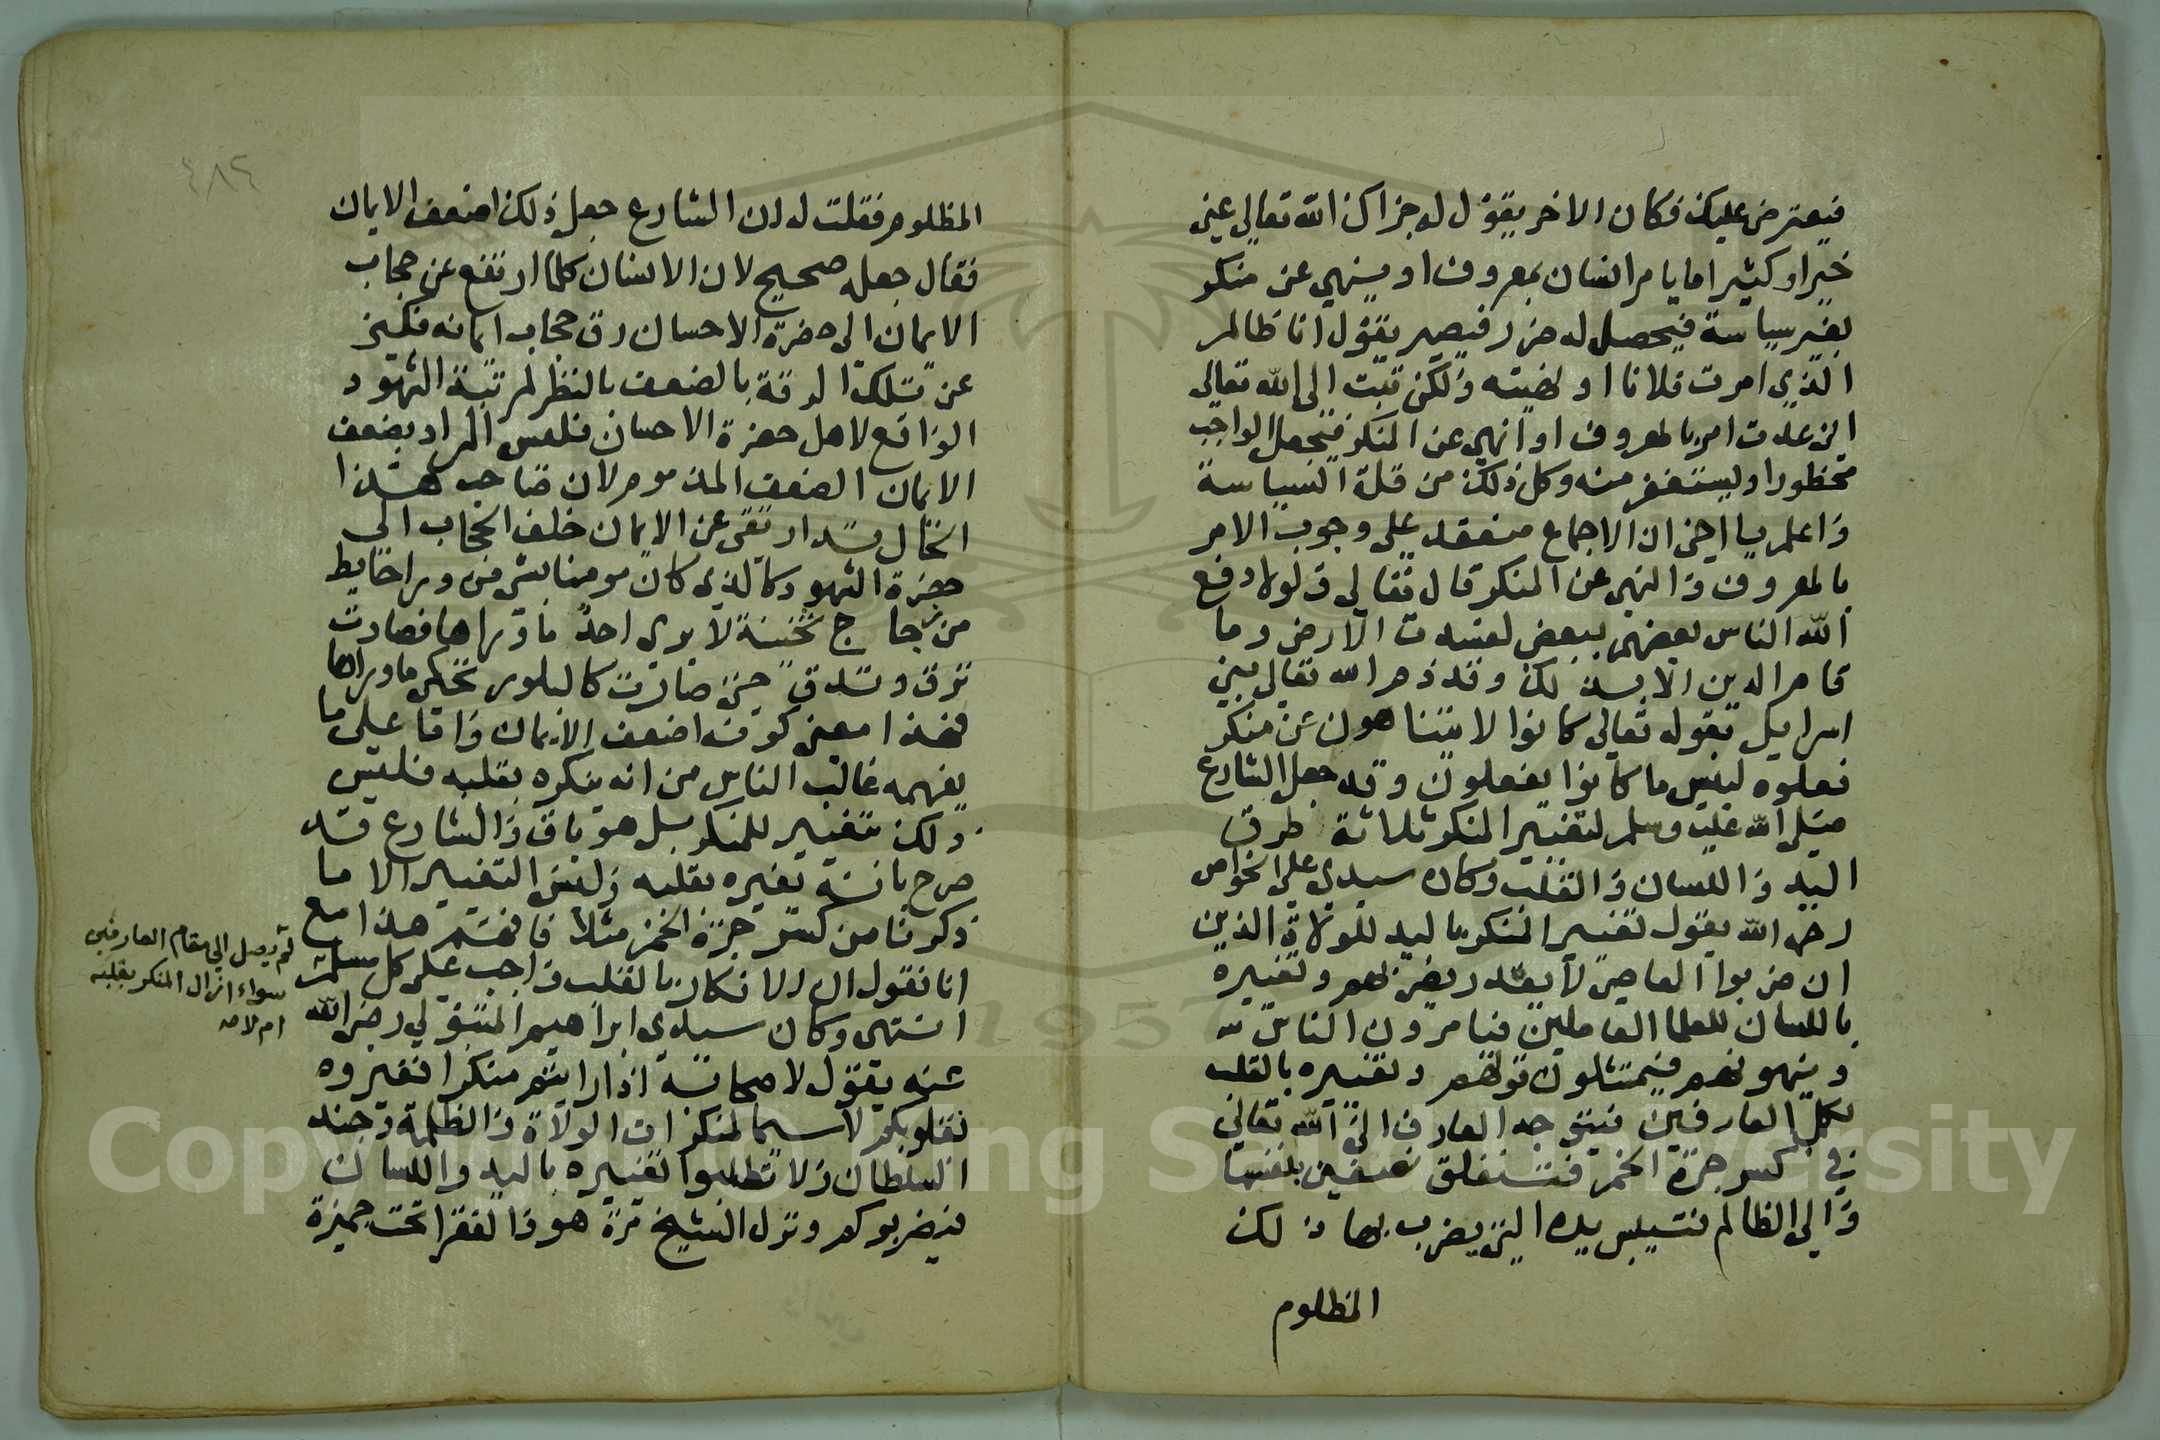 فيعترض عليك فكان الاخر يقول له جزاك الله تعالى عني
خيرا وكثيرا ما يامر انسان بمعروف او ينهي عن منكر
بغير سياسة فيحصل له ضرر فيصير يقول انا ظالم
الذي امرت فلانا او نهيته ولكن تبت الى الله تعالى
اني عدت امر بالمعروف او انهي عن المنكر فيجعل الواجب
محظورا ويستغفر منه وكل ذلك من قلة السياسة
واعلم يا اخي ان الاجماع منعقد على وجوب الامر
بالمعروف والنهي عن المنكر قال تعالى ولولا دفع
الله الناس بعضهم ببعض لفسدت الارض وما
قام الدين الا بذلك وقد ذم الله تعالى بني
اسرايل بقوله تعالى كانوا لا يتناهون عن منكر
فعلوه لبيس ما كانوا يفعلون وقد جعل الشارع
صلى الله عليه وسلم لتغيير المنكر ثلاثة طرق
اليد واللسان والقلب وكان سيدي علي الخواص
رضي الله يقول تغيير المنكر باليد للولاة الذين
ان ضربوا العاصي لا يقدر يضربهم وتغييره
باللسان للعلما العاملين فيامرون الناس
وينهونهم فيمتثلون قولهم وتغييره بالقلب
لكمل العارفين فيتوجه العارف الى الله تعالى
في كسر جرة الخمر فتنفلق نصفين بنفسها
والى الظالم فتيبس يده التي يضرب بها ذلك
المظلوم
٤٨٢
المظلوم فقلت له ان الشارع جعل ذلك اضعف الايمان
فقال جعله صحيح لان الانسان كلما ارتفع عن حجاب
الايمان الى حضرة الاحسان رق حجاب ايمانه فكني
عن تلك الرقة بالضعف بالنظر لمرتبة الشهود
الواقع لاهل حضرة الاحسان فليس المراد بضعف
الايمان الضعف المذموم لان صاحب هذا
الحال قد ارتقى عن الايمان خلف الحجاب الى
حضرة الشهود كالذي كان مومنا بشي من ورا حايط
من زجاج ثخينة لا يري احد ما وراها فصارت
ترق وتدق حتى صارت كالبلور تحكي ما وراها
فهذا معنى كونه اضعف الايمان واما على ما
يفهمه غالب الناس من انه ينكره بقلبه فليس
ذلك بتغيير للمنكر بل هو باق والشارع قد
صرح بانه يغيره بقلبه وليس التغيير الا ما
ذكرنا من كسر جرة الخمر مثلا فافهم هذا مع
انا نقول ان الانكار بالقلب واجب على كل مسلم
لم يصل الى مقام العارفين
سواء ازال المنكر بقلبه
ام لا صح
انتهى وكان سيدي ابراهيم المتبولي رضي الله
عنه يقول لاصحابه اذا رايتم منكرا فغيروه
بقلوبكم لا سيما المنكرات الولاة والظلمة وجند
السلطان ولا تطلبوا تغييره باليد واللسان
فيضربوكم ونزل الشيخ مرة هو والفقرا تحت جميزة